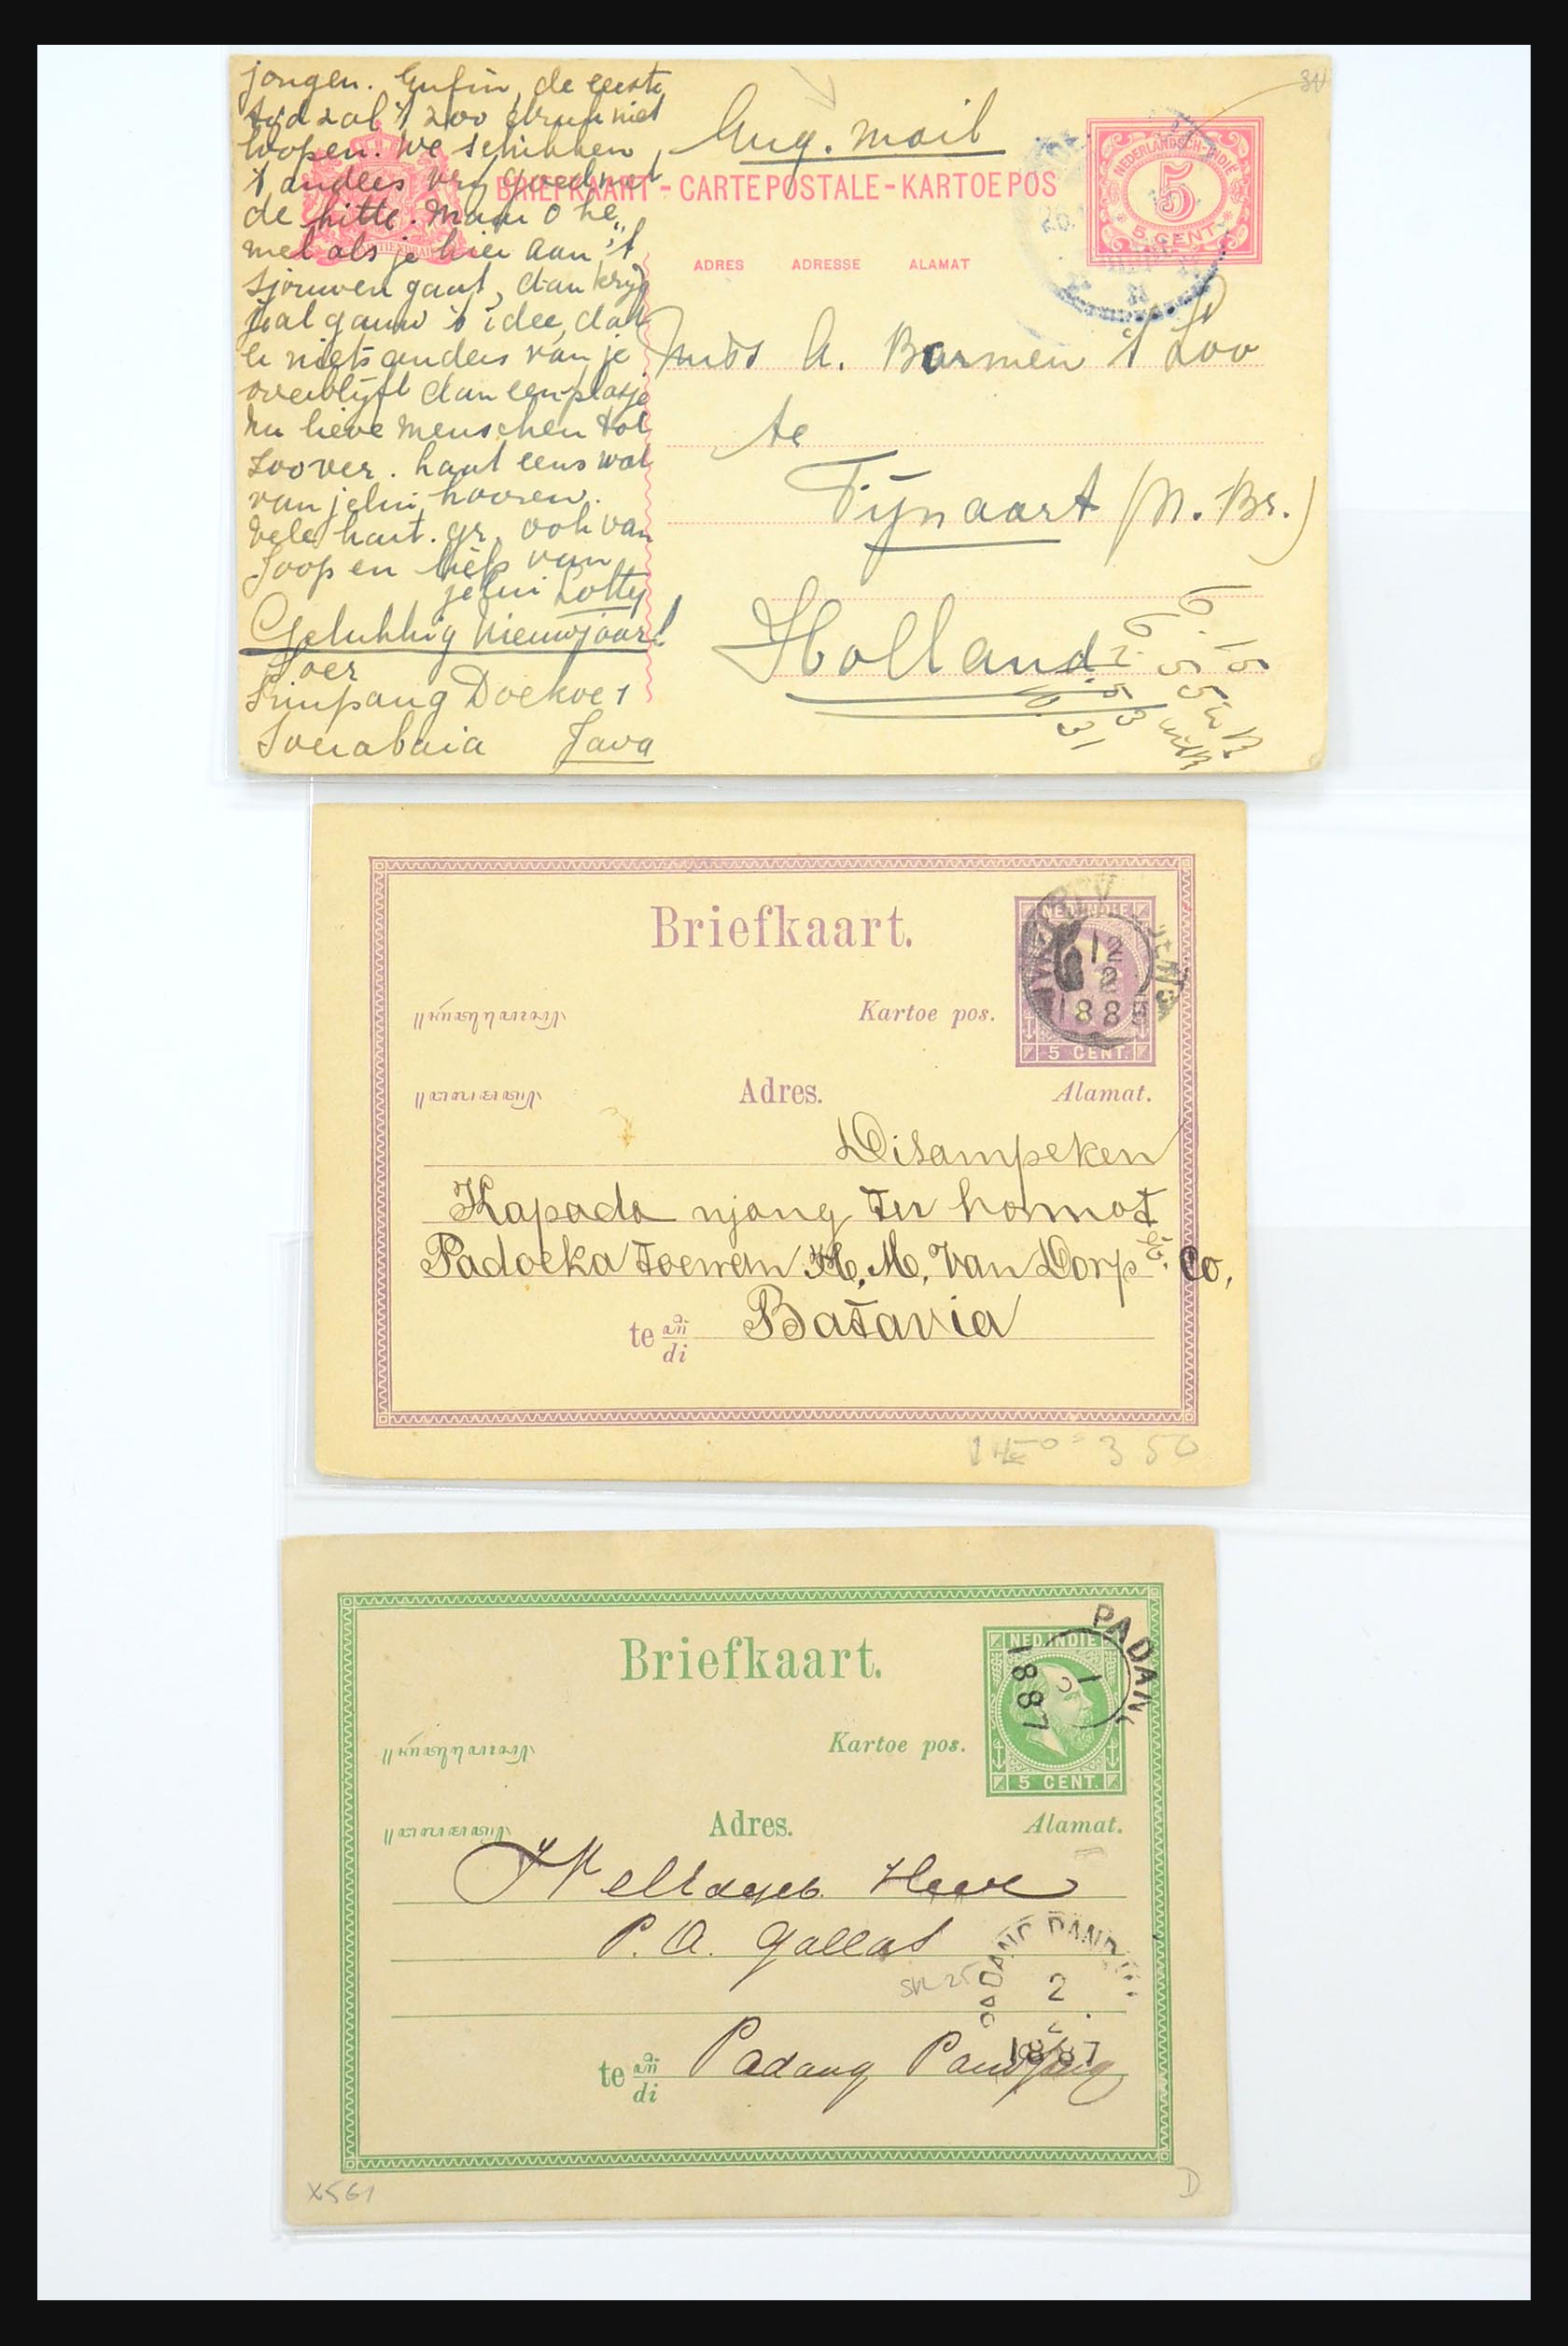 jongen. Enfin, de eerste
tijd zal 't zoo druk niet
loopen. We schikken
't anders vrij goed met
de hitte. Maar o he-
mel als je hier aan 't
sjouwen gaat, dan krijg
je al gauw 't idee, dat
er niets anders van je
overblijft dan een plasje
Nu lieve menschen tot
zoover. haat eens wat
van jelui hooren.
Vele hart. gr. ook van
Joop en liefs van
jelui Lotty
Gelukkig Nieuwjaar!
Simpang Doekoe 1
Soerabaia Java
Eng. mail
BRIEFKAART - CARTE POSTALE - KARTOE POS
NEDERLANDSCH-INDIE
5
5 CENT
ADRES ADRESSE ALAMAT
A. Barmen 't
te
Fijnaart (N. Br.)
Holland.
Briefkaart.
NED. INDIE
12
2
188
5 CENT.
Kartoe pos.
Adres.
Alamat.
Disampeken
Kapada njang ter hormat
Padoeka toewan H. M. Van Dorp & Co,
te di Batavia
350
Briefkaart.
NED. INDIE
PADANG
1
1887
5 CENT.
Kartoe pos.
Adres.
Alamat.
Weledgeb. Heer
P. A. Gallas
PADANG PANDJANG
2
1887
te di Padang Pandjang
X561
D